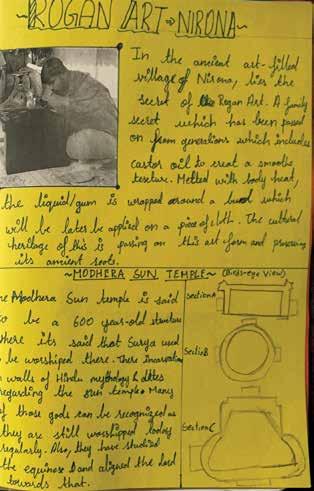 ~ROGAN ART → NIRONA~
In the ancient art-filled
village of Nirona, lies the
secret of the Rogan Art. A family
secret which has been passed
on from generations which includes
castor oil to creat a smoothe
texture. Melted with body heat,
the liquid/gum is wrapped around a which
will be later be applied on a piece of cloth. The cultural
heritage of this is pasing on this art form and preserving
its ancient roots.
~MODHERA SUN TEMPLE~ (Birds-eye View)
he Modhera Sun temple is said
to be a 600 year-old structure
here its said that Surya used
be worshiped there. There incarvation
n walls of Hindu mythology &
regarding the sun temple Many
of those gods can be recognized as
they are still worshipped today
regularly. Also, they have studied
the equinose and aligned the
towards that.
Section A
Section B
Section C